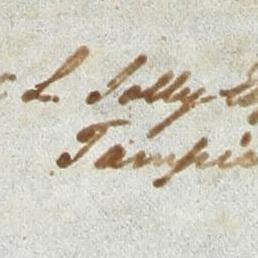 L. Jolly Es
Tampico